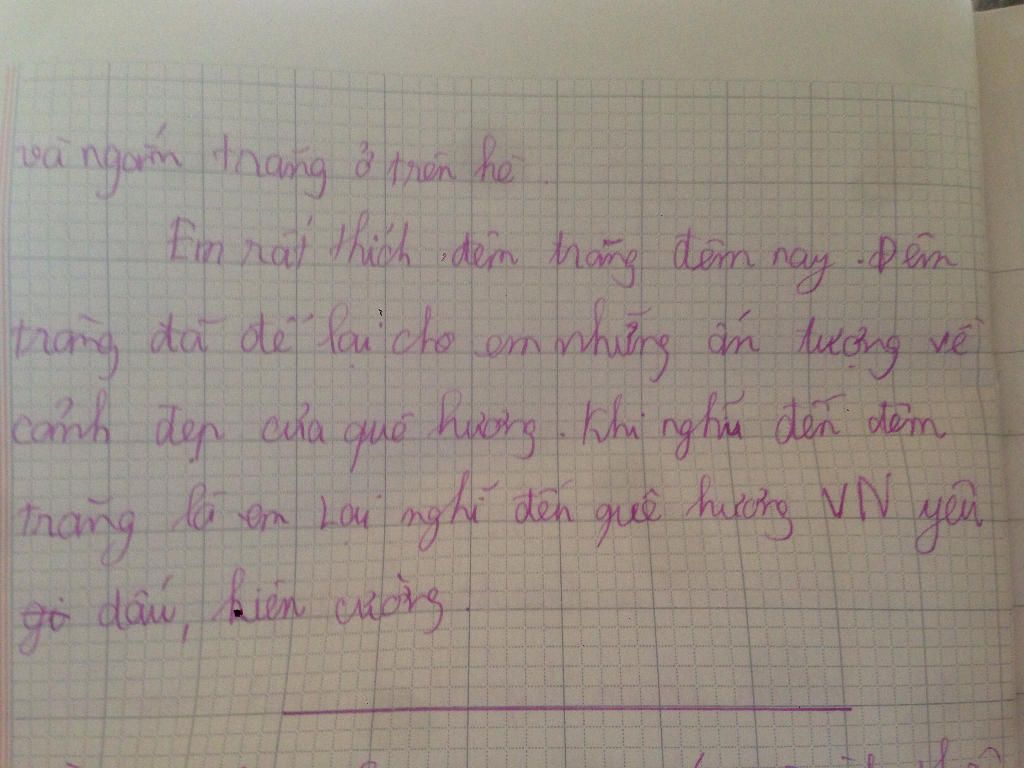 và ngắm trăng ở trên hè.
Em rất thích đêm trăng đêm nay. Đêm
trăng đã để lại cho em những ấn tượng về
cảnh đẹp của quê hương. Khi nghĩ đến đêm
trăng là em lại nghĩ đến quê hương VN yêu
dấu, kiên cường.